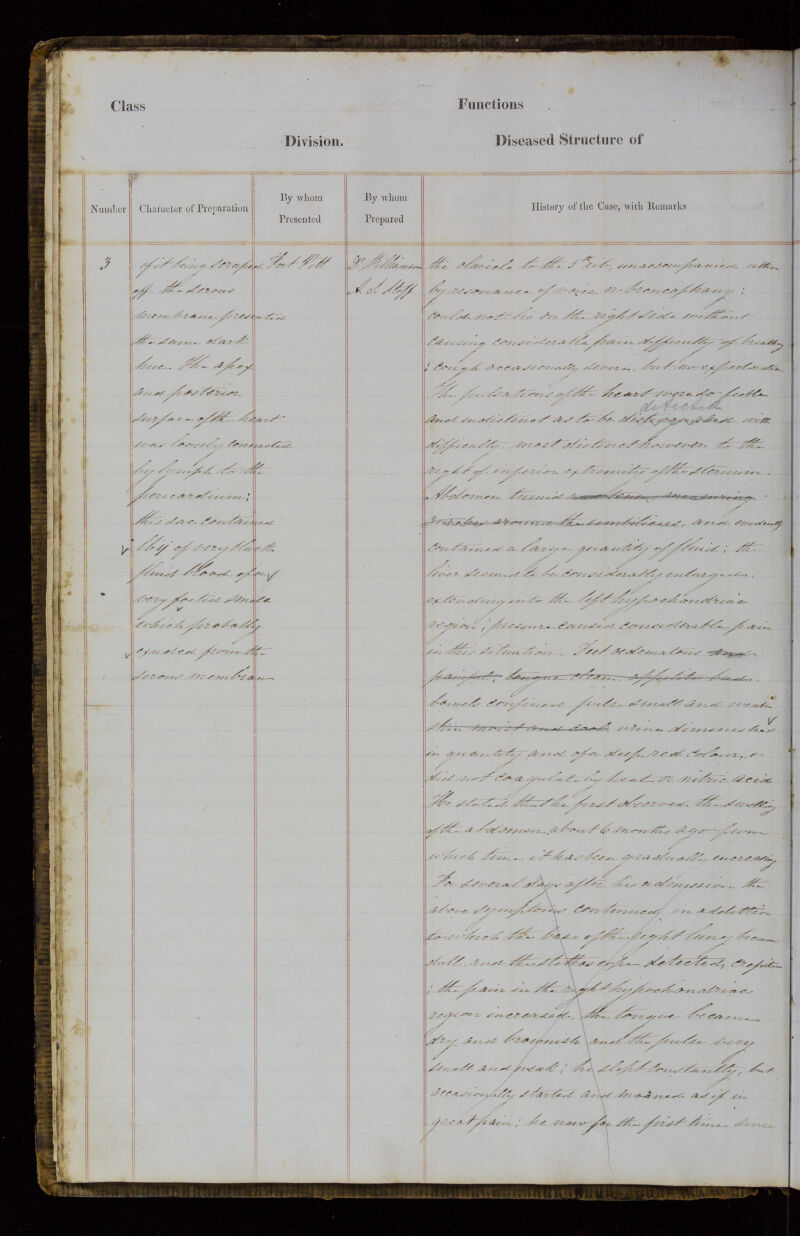 Class
Functions
Division.
Diseased Structure of
Number
Character of Preparation
By whom
Presented
By whom
Prepared
History of the Case, with Remarks
3
of it being scraped
off the serous
membrane presented
the same dark
hue. The apex
and posterior
surface of the heart
was loosely connected
by lymph to the
pericardium;
this sac contained
lbij of very black
fluid blood of a
very foetid smell
which probably
exuded from the
serous membrane
Fort Pitt
Dr Williamson
A. S. Staff
the clavicle to the 5th rib, unaccompanied either
by resonance of voice or broncophany:
could not lie on the right side without
causing considerable pain difficulty of breathing
; cough occasionally severe, but no expectoration
The pulsations of the heart were so feeble
detected
and indistinct as to be distinguished with
difficulty. most distinct however to the
right of inferior extremity of the sternum.
Abdomen tumid and tense, measuring
inches around the umbilicus, and evidently
contained a large quantity of fluid: the
liver seemed to be considerably enlarged
extending into the left hypochondriac
region; pressure caused considerable pain
in this situation. Feet oedematous and
painful, tongue clean. appetite bad.
bowels confined. pulse small and weak
skin moist and cool urine diminished
in quantity and of a deep red colour, &
did not coagulate by heat or nitric acid
He stated that he first observed the swelling
of the abdomen about 6 months ago from
which time it has been gradually encreasing
For several days after his admission the
above symptoms continued, in addition
to which the base of the right lung became
dull. and the stethoscope detected crepitus
; the pain in the right hypochondriac
region increased. the tongue became
dry and brownish and the pulse very
small and weak; he slept constantly, but
occasionally started and moaned as if in
great pain; he now for the first time since